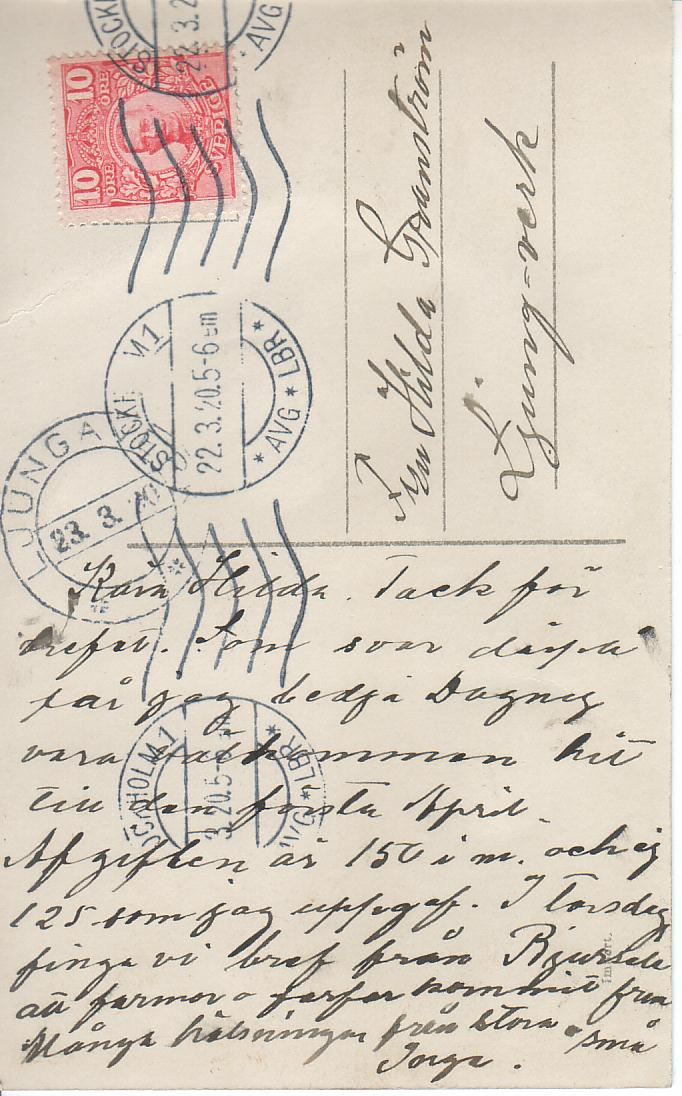 10 ÖRE 10 ÖRE
SVERIGE
STOCKH
22.3.2
AVG
STOCKH 1
22.3.20.5-6 em
* AVG * LBR *
LJUNGA
23. 3. 20
CKHOLM 1
3.20.5-6
AVG * LBR *
Fru Hilda Granström
Ljunga-verk
Kära Hilda. Tack för
brefvet. Som svar därpå
får jag bedja Dagney
vara välkommen hit
till den första April.
Afgiften är 150 i m. och ej
125 som jag uppgaf. I torsdag
finga vi bref från Bjursele
att farmor o farfar kommit fram
Många hälsningar från stora o små
Inga.
Import.